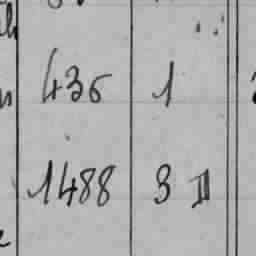 436 1
1488 3 II